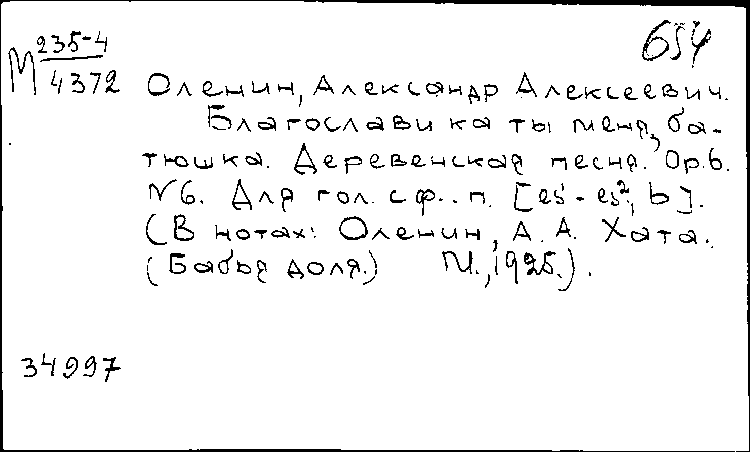 М 235-4
4372
654
Оленин, Александр Алексеевич.
Благослави ка ты меня, ба-
тюшка. Деревенская песня. Op.6.
N6. Для гол. с ф.. п. [es¹- es²; b].
(В нотах: Оленин, А. А. Хата.
(Бабья доля.) М., 1925.).
34997